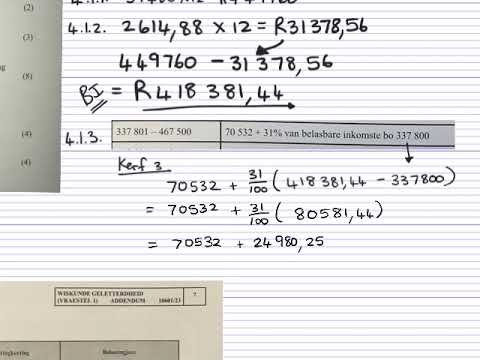 (2)
4.1.2. 2614,88 x 12 = R31378,56
(3)
449760 - 31378,56
(8)
BI = R418 381,44
(4)
4.1.3. 337 801 – 467 500 70 532 + 31% van belasbare inkomste bo 337 800
(4)
Kerf 3
70532 + 31/100 (418381,44 - 337800)
= 70532 + 31/100 (80581,44)
= 70532 + 24980,25
WISKUNDE GELETTERDHEID 7
(VRAESTEL 1) ADDENDUM 10601/23